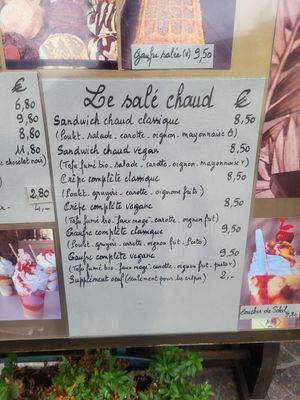 Gaufre salée (*) 9,50
€
6,80
9,80
8,80
11,80
chocolat noir)
2,80
4,-
Le salé chaud €
Sandwich chaud classique 8,50
(Poulet, salade, carotte, oignon, mayonnaise)
Sandwich chaud vegan 8,50
(Tofu fumé bio, salade, carotte, oignon, mayonnaise v)
Crêpe complète classique 8,50
(Poulet, gruyère, carotte, oignons frits)
Crêpe complète vegane 9,50
(Tofu fumé bio, faux mage, carotte, oignon frit)
Gaufre complète classique 9,50
(Poulet, gruyère, carotte, oignon frit, pesto)
Gaufre complète vegane 9,50
(Tofu fumé bio, faux mage, carotte, oignon frit, pesto v)
Supplément oeuf (seulement pour la crêpe) 2,-
Coucher de Soleil
9,80